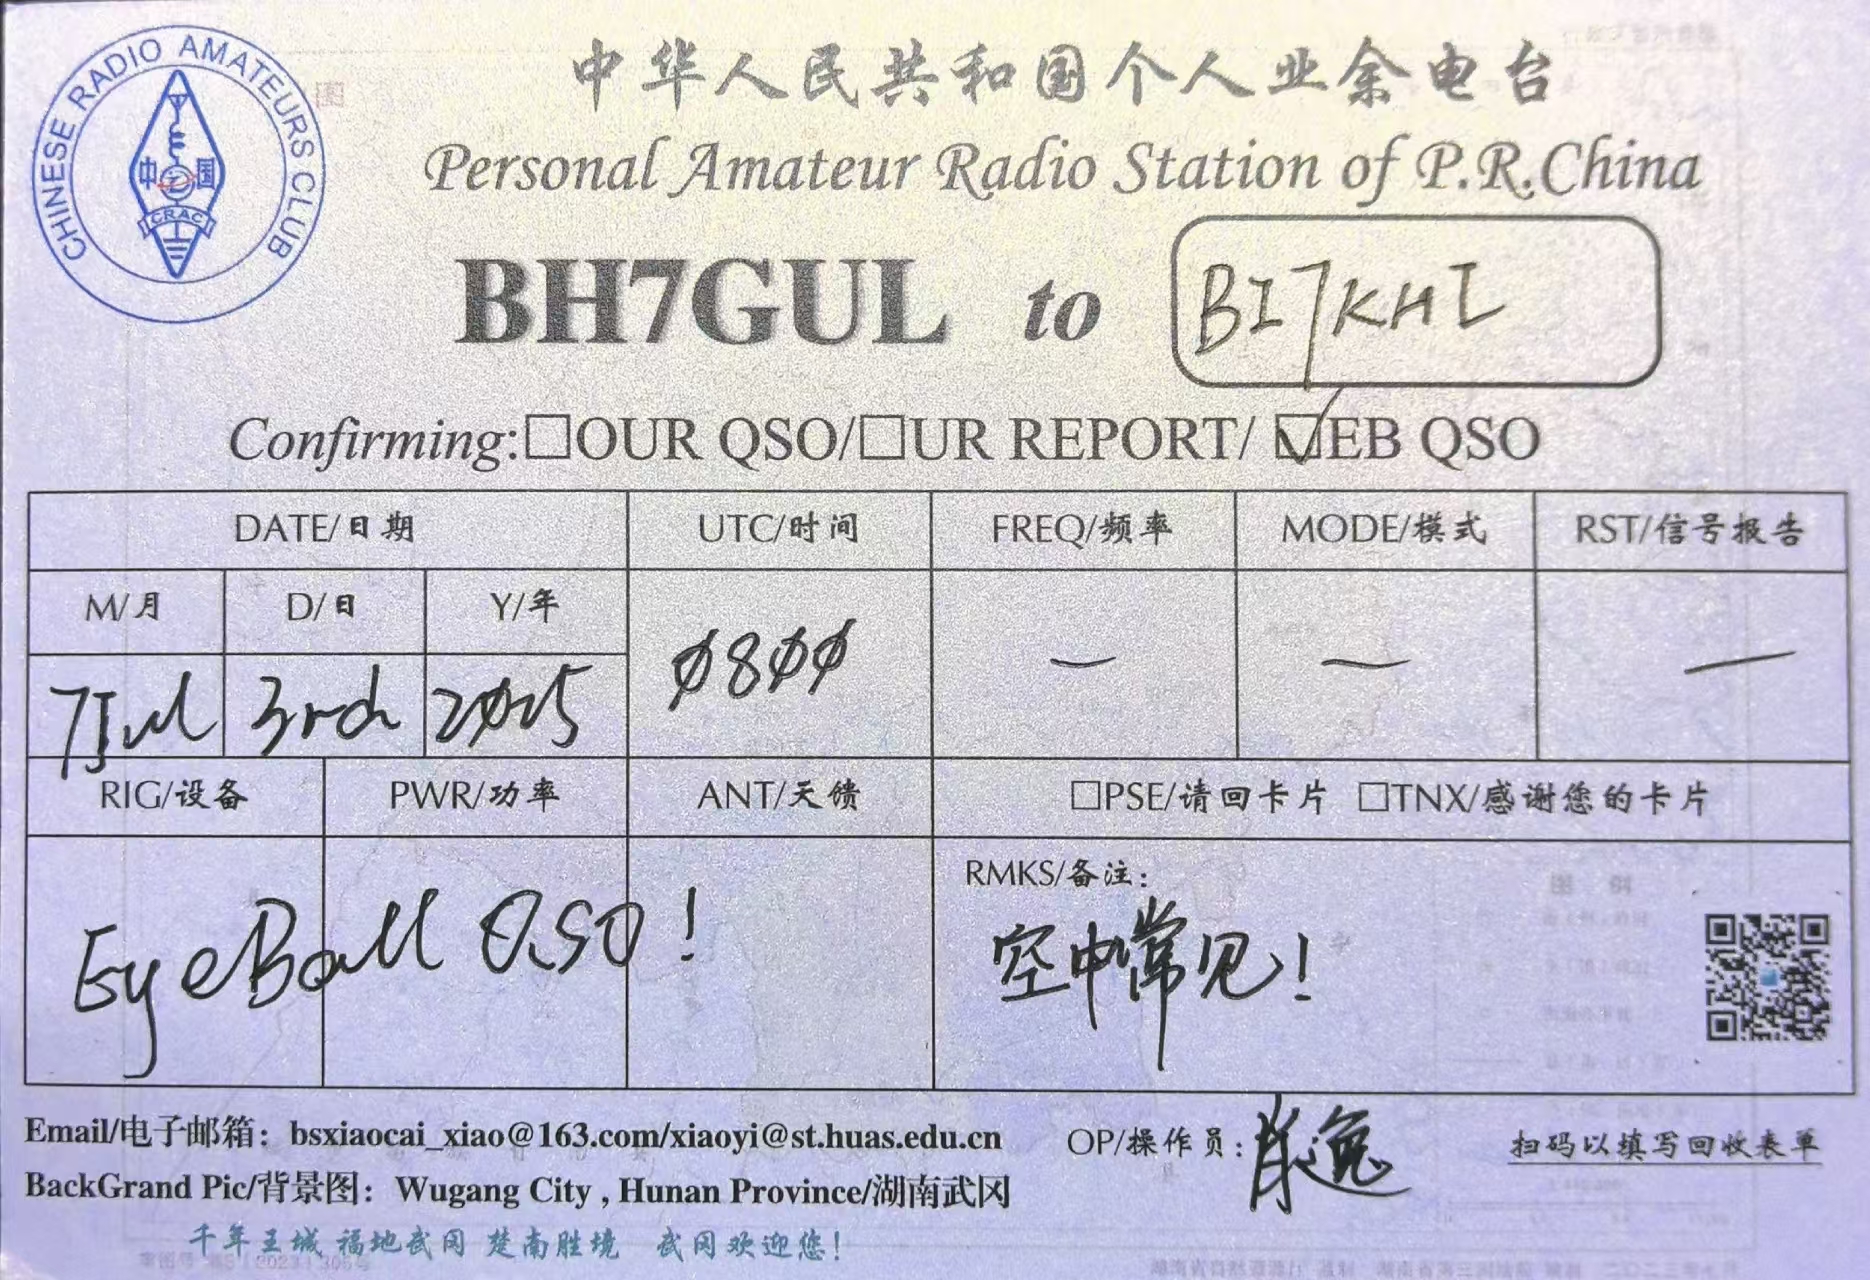 CHINESE RADIO AMATEURS CLUB
中国
CRAC
中华人民共和国个人业余电台
Personal Amateur Radio Station of P.R.China
BH7GUL to BI7KHI
Confirming:□OUR QSO/□UR REPORT/ ☑EB QSO
DATE/日期 UTC/时间 FREQ/频率 MODE/模式 RST/信号报告
M/月 D/日 Y/年
7Jul 3rd 2025 0800 — — —
RIG/设备 PWR/功率 ANT/天馈 □PSE/请回卡片 □TNX/感谢您的卡片
EyeBall QSO!
RMKS/备注:
空中常见!
Email/电子邮箱：bsxiaocai_xiao@163.com/xiaoyi@st.huas.edu.cn
OP/操作员:肖逸
扫码以填写回收表单
BackGrand Pic/背景图：Wugang City , Hunan Province/湖南武冈
千年王城 福地武冈 楚南胜境 武冈欢迎您!